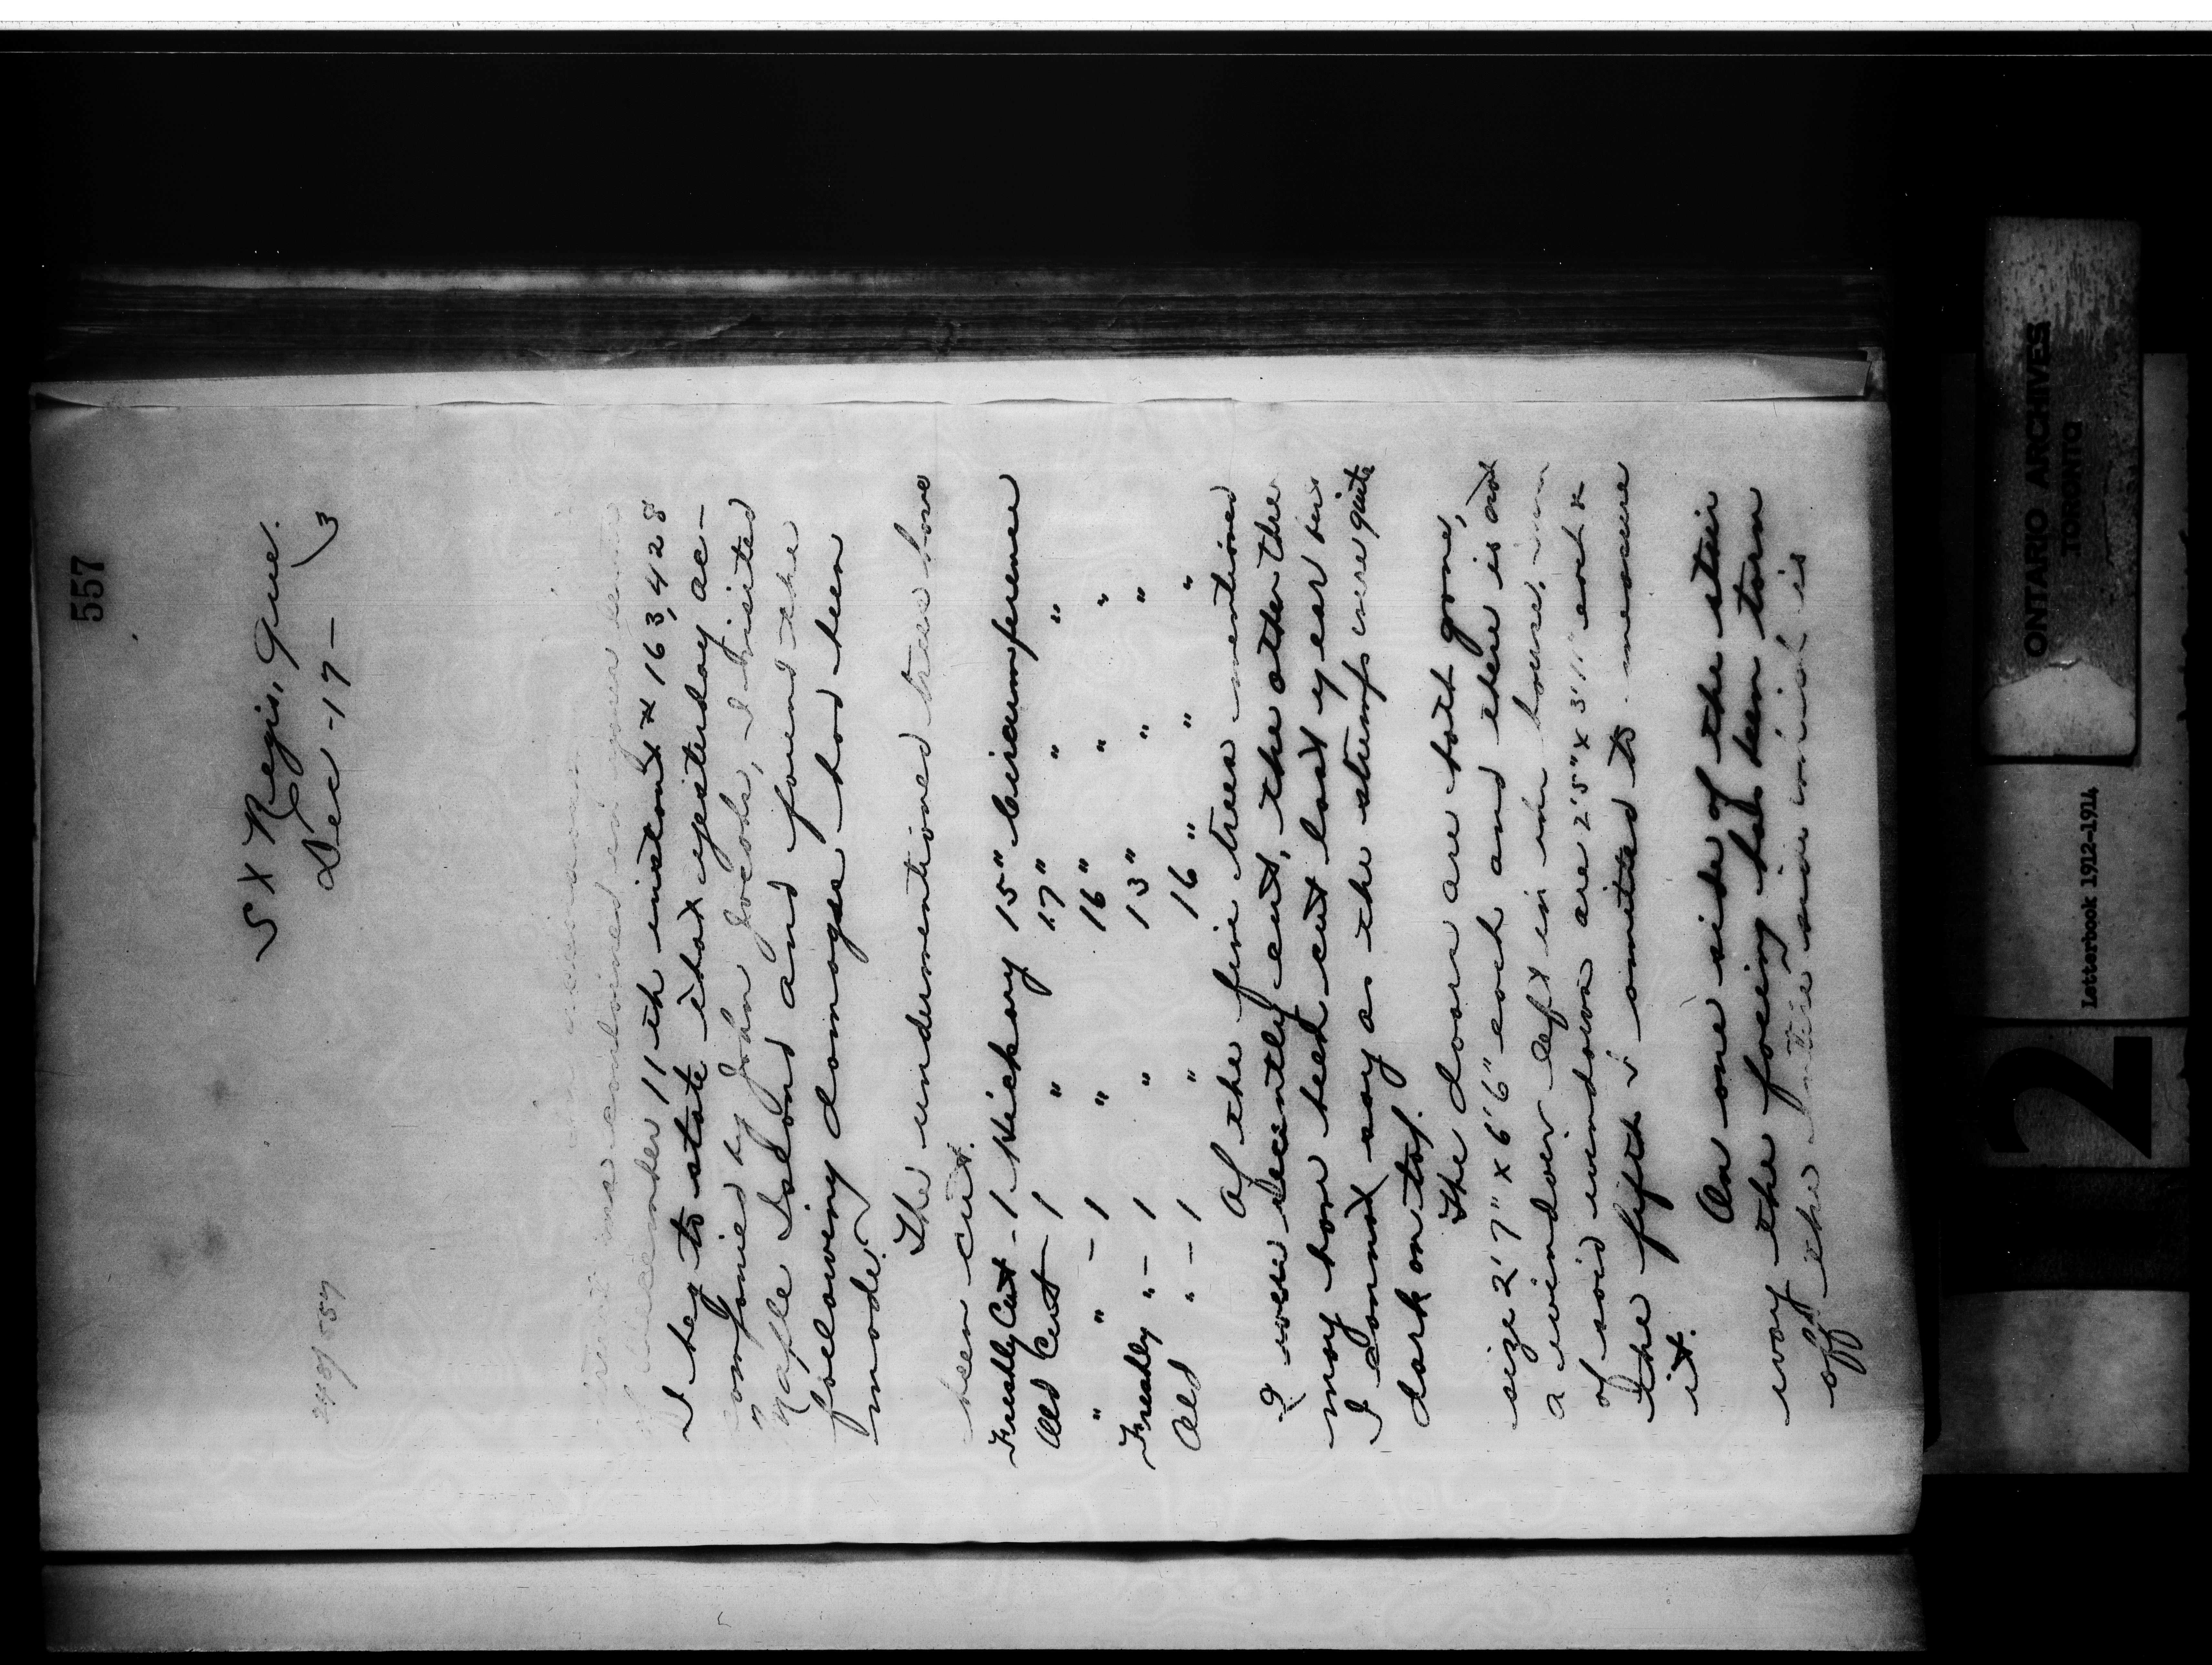 557
St Regis, Que.
Dec -17- 13
I beg to state that yesterday ac-
11th instant # 163,428
companied by John Jocobs, I visited
Maple Island and found the
following damage had been
made.
The undermentioned trees have
been cut.
Freshly Cut - 1 Hickory 15" Circumference
Old Cut - 1 " 17" " "
" " - 1 " 16" " "
Freshly " - 1 " 13" " "
Old " - 1 " 16" " "
Of the five trees mentioned
2 were recently cut, the other three
may have been cut last year but
I cannot say as the stumps were quite
dark on top.
The doors are both gone,
size 2'7" x 6'6" each and there is not
a window left in the house,
of said windows are 2'5" x 3'11" each &
the fifth I omitted to measure
it.
On one side of the stair
way the facing has been torn
off the entire side which is
ONTARIO ARCHIVES
TORONTO
Letterbook 1912-1914
2